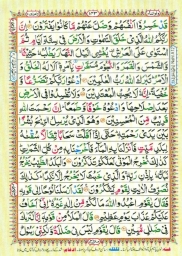 قَدْ خَسِرُوْۤا اَنْفُسَهُمْ وَضَلَّ عَنْهُمْ مَّا كَانُوْا يَفْتَرُوْنَ اِنَّ
رَبَّكُمُ اللّٰهُ الَّذِيْ خَلَقَ السَّمٰوٰتِ وَالْاَرْضَ فِيْ سِتَّةِ اَيَّامٍ ثُمَّ
اسْتَوٰى عَلَى الْعَرْشِ يُغْشِي الَّيْلَ النَّهَارَ يَطْلُبُهٗ حَثِيْثًا وَّ
الشَّمْسَ وَالْقَمَرَ وَالنُّجُوْمَ مُسَخَّرٰتٍ بِاَمْرِهٖ اَلَا لَهُ الْخَلْقُ
وَالْاَمْرُ تَبٰرَكَ اللّٰهُ رَبُّ الْعٰلَمِيْنَ اُدْعُوْا رَبَّكُمْ تَضَرُّعًا وَّ
خُفْيَةً اِنَّهٗ لَا يُحِبُّ الْمُعْتَدِيْنَ وَلَا تُفْسِدُوْا فِي الْاَرْضِ
بَعْدَ اِصْلَاحِهَا وَادْعُوْهُ خَوْفًا وَّطَمَعًا اِنَّ رَحْمَتَ اللّٰهِ
قَرِيْبٌ مِّنَ الْمُحْسِنِيْنَ وَهُوَ الَّذِيْ يُرْسِلُ الرِّيٰحَ بُشْرًا
بَيْنَ يَدَيْ رَحْمَتِهٖ حَتّٰۤى اِذَاۤ اَقَلَّتْ سَحَابًا ثِقَالًا سُقْنٰهُ
لِبَلَدٍ مَّيِّتٍ فَاَنْزَلْنَا بِهِ الْمَآءَ فَاَخْرَجْنَا بِهٖ مِنْ كُلِّ الثَّمَرٰتِ
كَذٰلِكَ نُخْرِجُ الْمَوْتٰى لَعَلَّكُمْ تَذَكَّرُوْنَ وَالْبَلَدُ الطَّيِّبُ
يَخْرُجُ نَبَاتُهٗ بِاِذْنِ رَبِّهٖ وَالَّذِيْ خَبُثَ لَا يَخْرُجُ اِلَّا نَكِدًا كَذٰلِكَ
نُصَرِّفُ الْاٰيٰتِ لِقَوْمٍ يَّشْكُرُوْنَ لَقَدْ اَرْسَلْنَا نُوْحًا اِلٰى قَوْمِهٖ
فَقَالَ يٰقَوْمِ اعْبُدُوا اللّٰهَ مَا لَكُمْ مِّنْ اِلٰهٍ غَيْرُهٗ اِنِّيْۤ اَخَافُ
عَلَيْكُمْ عَذَابَ يَوْمٍ عَظِيْمٍ قَالَ الْمَلَاُ مِنْ قَوْمِهٖۤ اِنَّا لَنَرٰىكَ
فِيْ ضَلٰلٍ مُّبِيْنٍ قَالَ يٰقَوْمِ لَيْسَ بِيْ ضَلٰلَةٌ وَّلٰكِنِّيْ رَسُوْلٌ